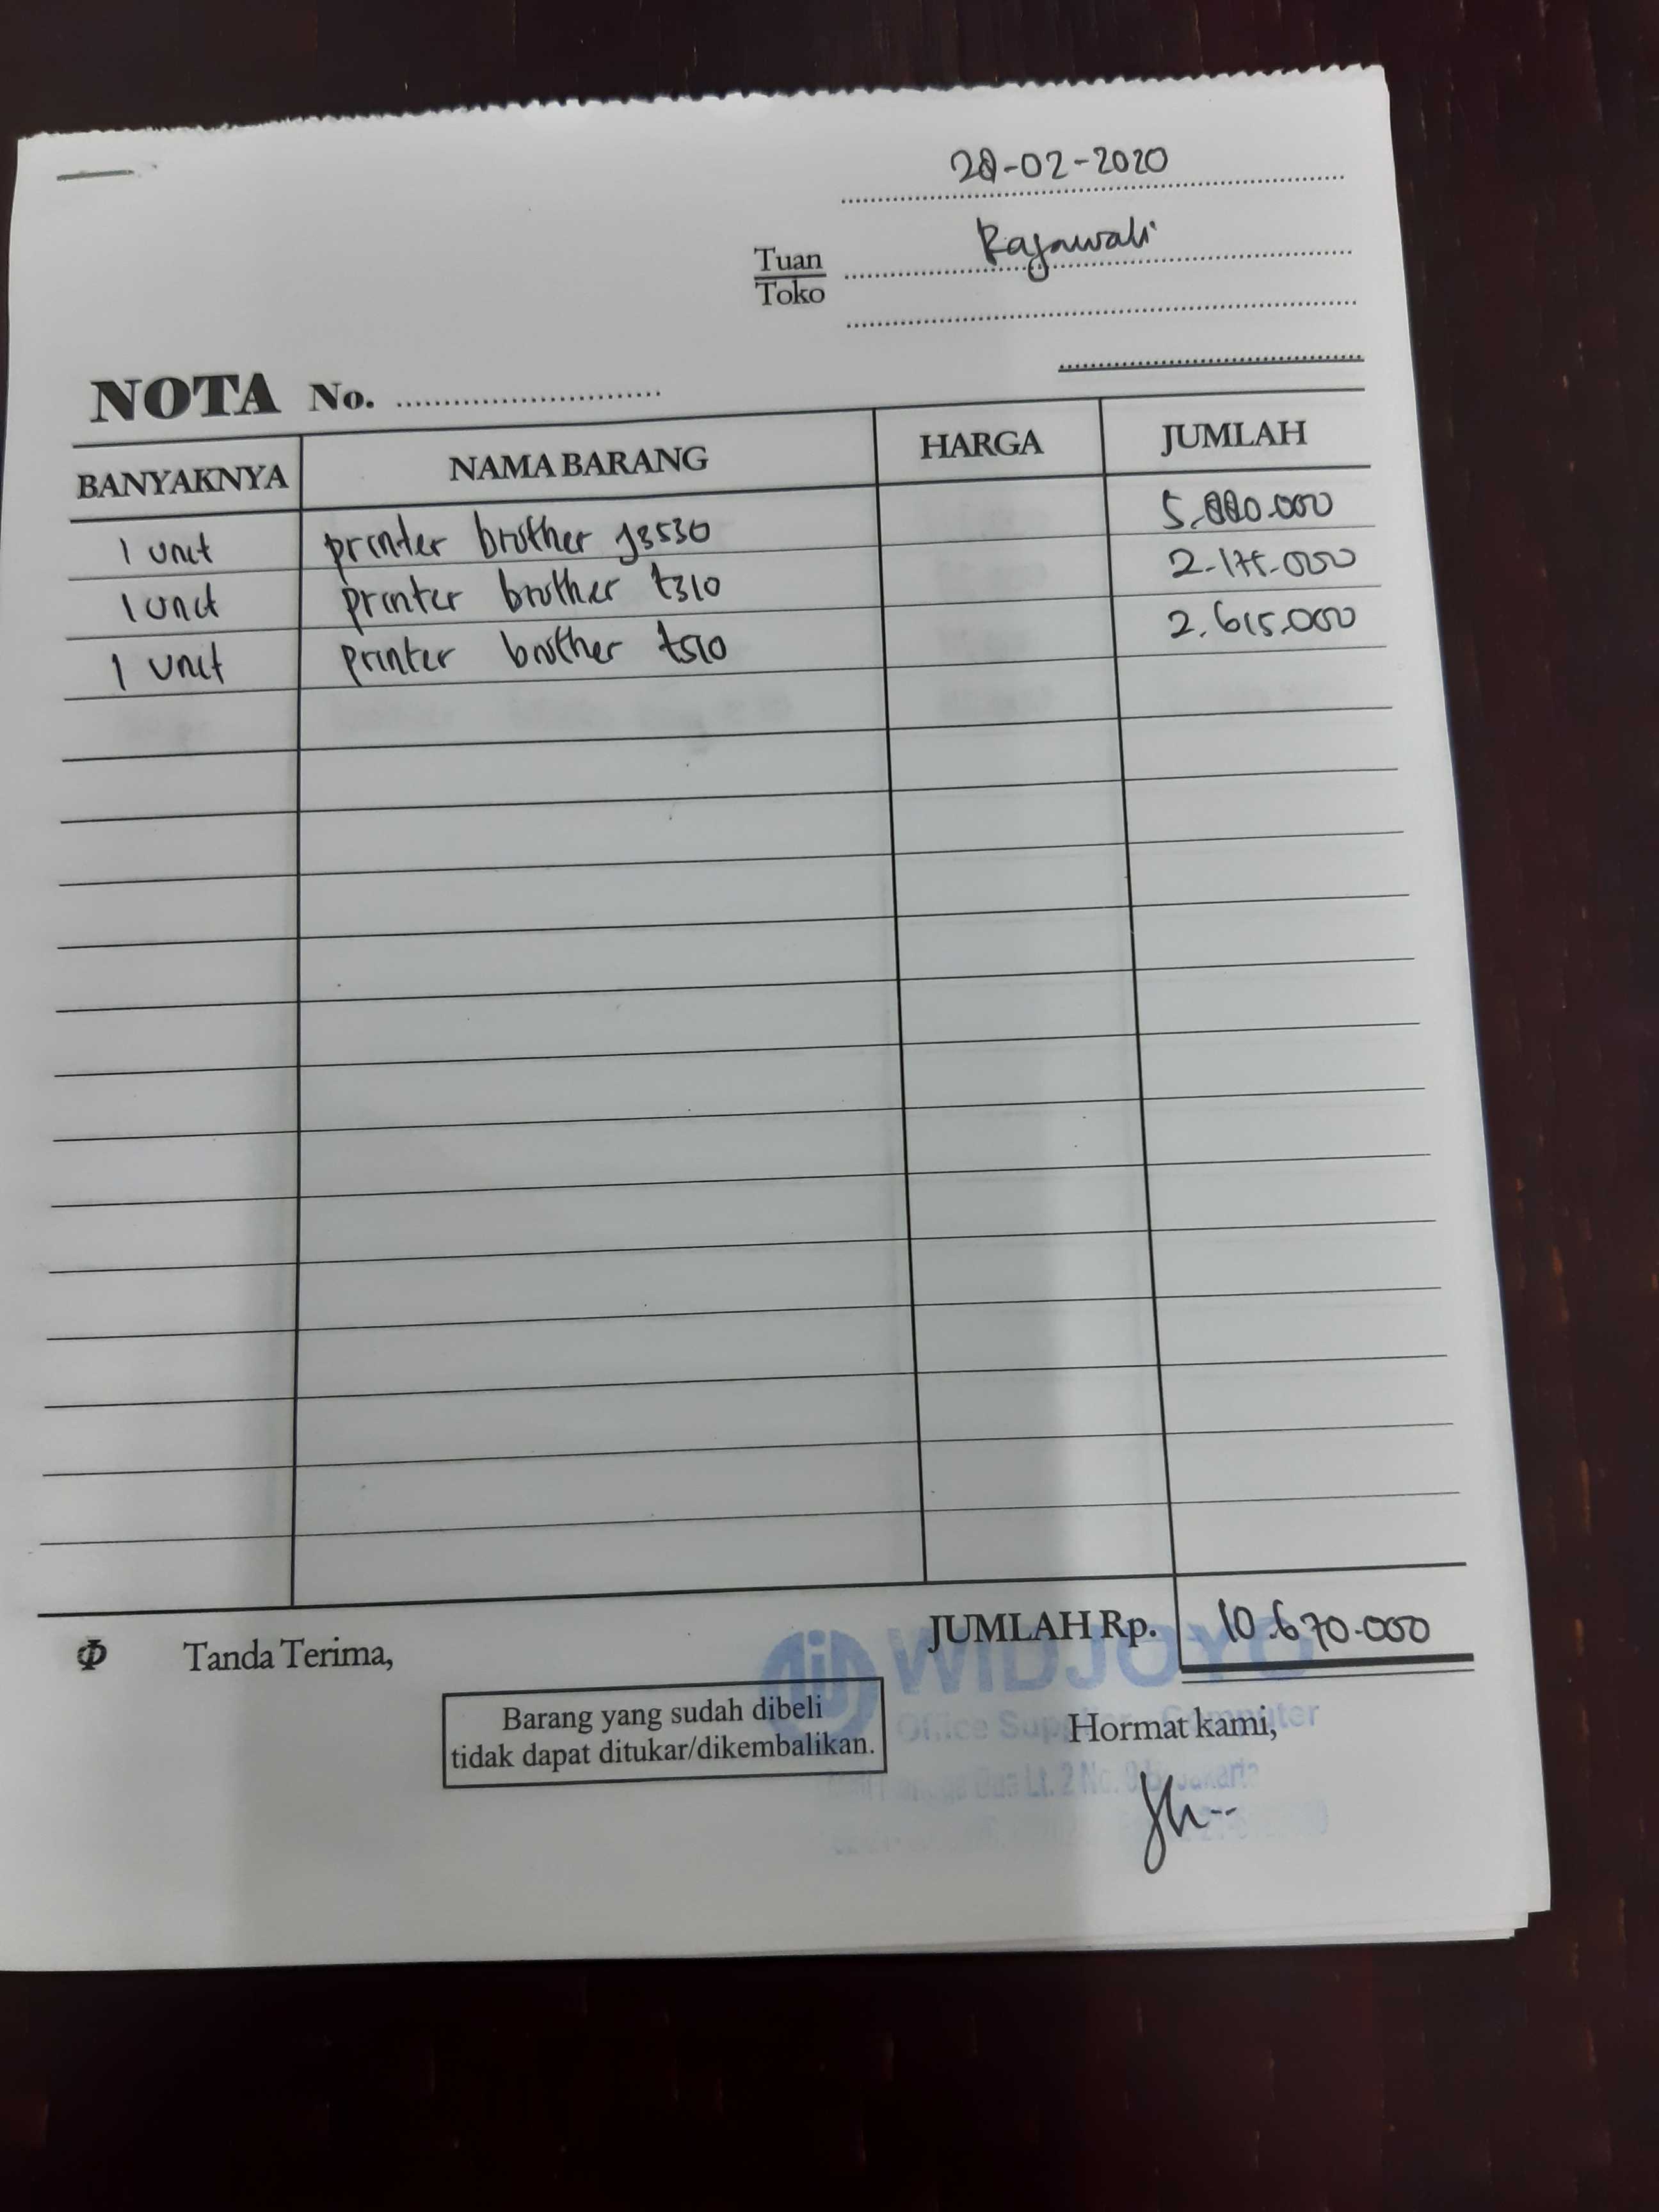 28-02-2020
Tuan
Toko
Rajawali
NOTA No.
BANYAKNYA NAMA BARANG HARGA JUMLAH
1 unit printer brother j3530 5.880.000
1 unit printer brother t310 2.175.000
1 unit printer brother t510 2.615.000
JUMLAH Rp. 10.670.000
Tanda Terima,
Barang yang sudah dibeli
tidak dapat ditukar/dikembalikan.
Hormat kami,
WIDJOYO
Office Computer
Dua Lt. 2 No.